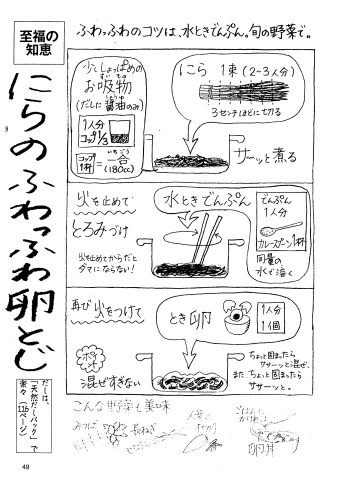 至福の
知恵
にらのふわっふわ卵とじ
だしは、
「天然だしパック」で
楽々(116ページ)
49
ふわっふわのコツは、水ときでんぷん。旬の野菜で。
少ししょっぱめの
お吸物
(だしに醤油のみ)
1人分
コップ1/3
コップ
1杯
一合
いちごう
(180cc)
にら 1束(2~3人分)
3センチほどに切る
サーッと煮る
火を止めて
とろみづけ
火を止めてからだと
ダマにならない!
水ときでんぷん
でんぷん
1人分
カレースプーン1杯
同量の
水で溶く
再び火をつけて
とき卵
1人分
1個
ポイント
混ぜすぎない
ちょっと固まったら
ササーッと混ぜ、
また、ちょっと固まったら
ササーッと。
こんな野菜も美味
みつば
長ねぎ
人参
ごはんに
かければ
卵丼